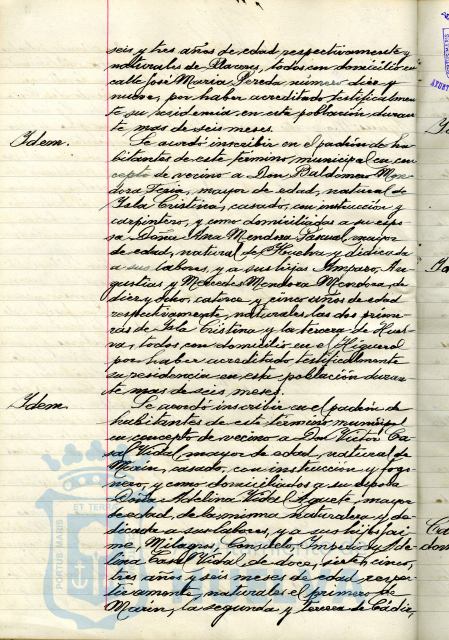 seis y tres años de edad respectivamente y
naturales de Placeres, todos con domicilio en
calle José Maria Pereda número diez y
nueve, por haber acreditado testificalmen-
te su residencia en esta población duran-
te mas de seis meses.
Idem. Se acordó inscribir en el padrón de ha-
bitantes de este término municipal en con-
cepto de vecino a Don Baldomero Men-
doza, mayor de edad, natural de
Isla Cristina, casado, con instrucción y
carpintero, y como domiciliados a su espo-
sa Doña Ana Mendoza Pascual, mayor
de edad, natural de Huelva y dedicada
a sus labores, y a sus hijas Amparo, An-
gustias y Mercedes Mendoza Mendoza, de
diez y ocho, catorce y cinco años de edad
respectivamente, naturales las dos prime-
ras de Isla Cristina y la tercera de Huel-
va, todos con domicilio en el Higueral
por haber acreditado testificalmente
su residencia en esta población duran-
te mas de seis meses.
Idem. Se acordó inscribir en el padrón de
habitantes de este término municipal
en concepto de vecino a Don Victor Ca-
sal Vidal, mayor de edad, natural de
Marin, casado, con instrucción y fogo-
nero, y como domiciliados a su esposa
Doña Adelina Vidal, mayor
de edad, de la misma naturaleza y de-
dicada a sus labores, y a sus hijos Jai-
me, Milagros, Consuelo, Amparo y Ade-
lina Casal Vidal de doce, siete, cinco,
tres años y seis meses de edad respec-
tivamente, naturales el primero de
Marin, la segunda y tercera de Cádiz,
PORTUS MARIS
ET TERRAE